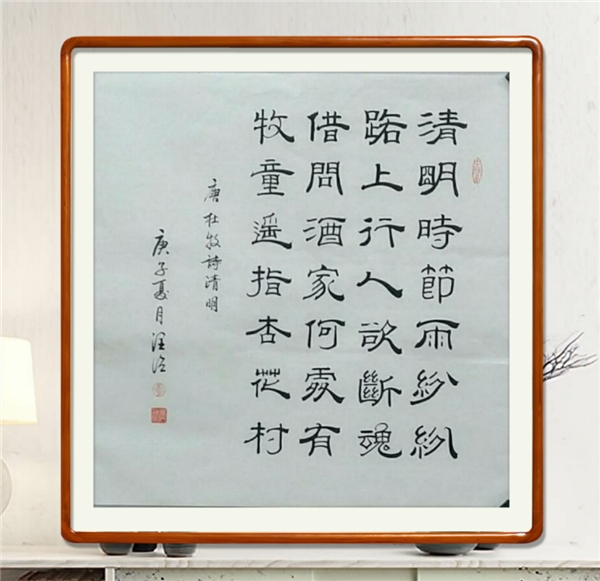 清明時節雨紛紛
路上行人欲斷魂
借問酒家何處有
牧童遥指杏花村
唐杜牧詩清明
庚子夏月汪治